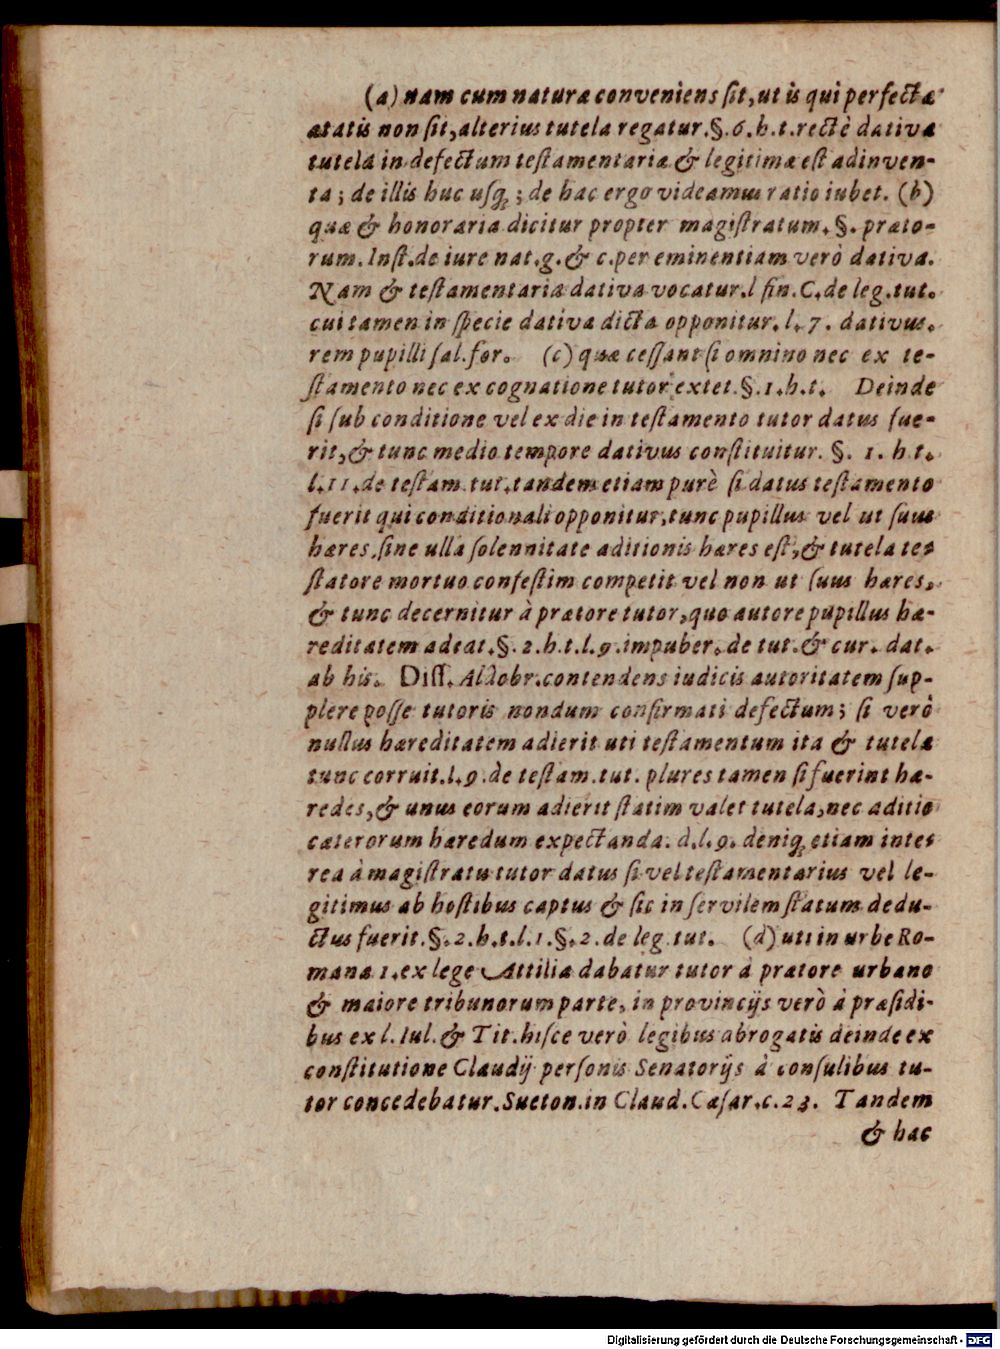 (a) nam cum naturæ conveniens sit, ut is qui perfectæ
ætatis non sit, alterius tutela regatur. §. 6. h. t. rectè dativa
tutela in defectum testamentariæ & legitimæ est adinven-
ta; de illis huc usq; ; de hac ergo videamus ratio iubet. (b)
quæ & honoraria dicitur propter magistratum. §. præto-
rum. Inst. de iure nat. g. & c. per eminentiam verò dativa.
Nam & testamentaria dativa vocatur. l fin. C. de leg. tut.
cui tamen in specie dativa dicta opponitur. l. 7. dativus.
rem pupilli sal. for. (c) quæ cessant si omnino nec ex te-
stamento nec ex cognatione tutor extet. §. 1. h. t. Deinde
si sub conditione vel ex die in testamento tutor datus fue-
rit, & tunc medio tempore dativus constituitur. §. 1. h t.
l. 11. de testam. tut. tandem etiam purè si datus testamento
fuerit qui conditionali opponitur, tunc pupillus vel ut suus
hæres, sine ulla solennitate aditionis hæres est, & tutela te-
statore mortuo confestim competit vel non ut suus hæres,
& tunc decernitur à prætore tutor, quo autore pupillus hæ-
reditatem adeat. §. 2. h. t. l. 9. impuber. de tut. & cur. dat.
ab his. Diss. Aldobr. contendens iudicis autoritatem sup-
plere posse tutoris nondum confirmati defectum; si verò
nullus hæreditatem adierit uti testamentum ita & tutelæ
tunc corruit. l. 9. de testam. tut. plures tamen si fuerint hæ-
redes, & unus eorum adierit statim valet tutela, nec aditio
cæterorum hæredum expectanda. d. l. 9. deniq; etiam inte-
rea à magistratu tutor datus si vel testamentarius vel le-
gitimus ab hostibus captus & sic in servilem statum dedu-
ctus fuerit. §. 2. h. t. l. 1. §. 2. de leg. tut. (d) uti in urbe Ro-
mana 1. ex lege Attilia dabatur tutor à prætore urbano
& maiore tribunorum parte, in provincijs verò à præsidi-
bus ex l. Iul. & Tit. hisce verò legibus abrogatis deinde ex
constitutione Claudij personis Senatorijs à consulibus tu-
tor concedebatur. Sueton. in Claud. Cæsar. c. 23. Tandem
& hac
Digitalisierung gefördert durch die Deutsche Forschungsgemeinschaft - DFG